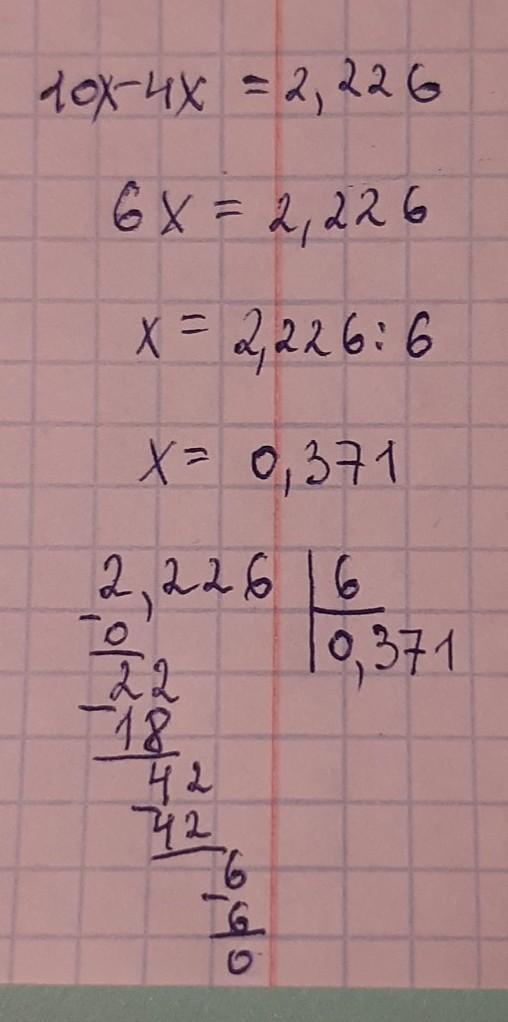 10x-4x = 2,226
6x = 2,226
x = 2,226:6
x = 0,371
2,226 | 6
-0 | 0,371
22
-18
42
-42
6
-6
0